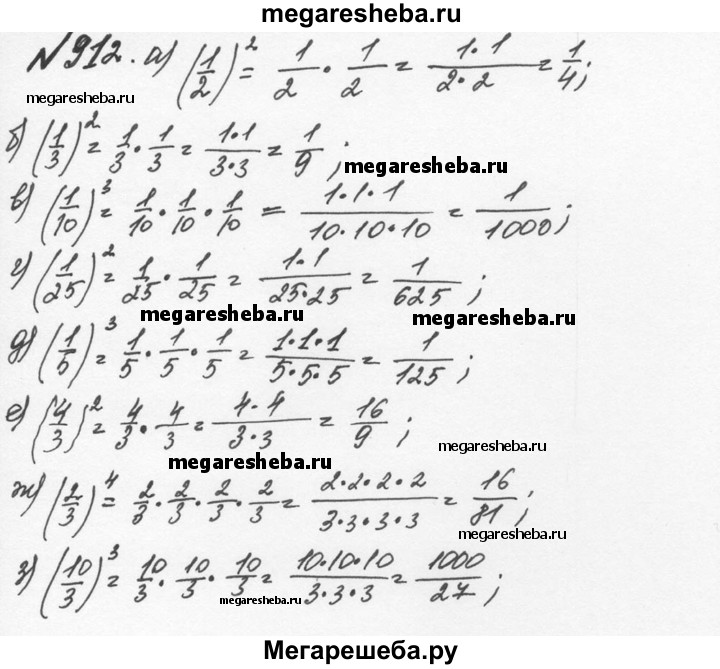 megaresheba.ru
№912. а) (1/2)² = 1/2 · 1/2 = 1·1/2·2 = 1/4;
megaresheba.ru
б) (1/3)² = 1/3 · 1/3 = 1·1/3·3 = 1/9;
megaresheba.ru
в) (1/10)³ = 1/10 · 1/10 · 1/10 = 1·1·1/10·10·10 = 1/1000;
г) (1/25)² = 1/25 · 1/25 = 1·1/25·25 = 1/625;
megaresheba.ru megaresheba.ru
д) (1/5)³ = 1/5 · 1/5 · 1/5 = 1·1·1/5·5·5 = 1/125;
е) (4/3)² = 4/3 · 4/3 = 4·4/3·3 = 16/9;
megaresheba.ru
megaresheba.ru
ж) (2/3)⁴ = 2/3 · 2/3 · 2/3 · 2/3 = 2·2·2·2/3·3·3·3 = 16/81;
megaresheba.ru
з) (10/3)³ = 10/3 · 10/3 · 10/3 = 10·10·10/3·3·3 = 1000/27;
megaresheba.ru
Мегарешеба.ру